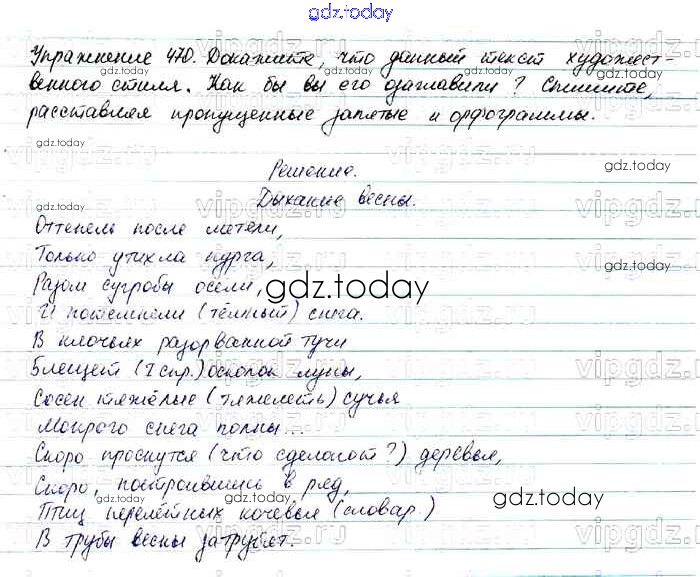 gdz.today
Упражнение 470. Докажите, что данный текст художест-
венного стиля. Как бы вы его озаглавили? Спишите,
расставляя пропущенные запятые и орфограммы.
gdz.today
Решение. gdz.today
Дыхание весны.
Оттепель после метели,
Только утихла пурга,
Разом сугробы осели,
gdz.today
И потемнели (тёмный) снега.
В клочьях разорванной тучи
Блещет (I спр.) осколок луны,
Сосен тяжёлые (тяжелеть) сучья
Мокрого снега полны...
Скоро проснутся (что сделают?) деревья,
Скоро, построившись в ряд,
gdz.today
Птиц перелётных кочевья (словар.)
В трубы весны затрубят.
gdz.today
vipgdz.ru